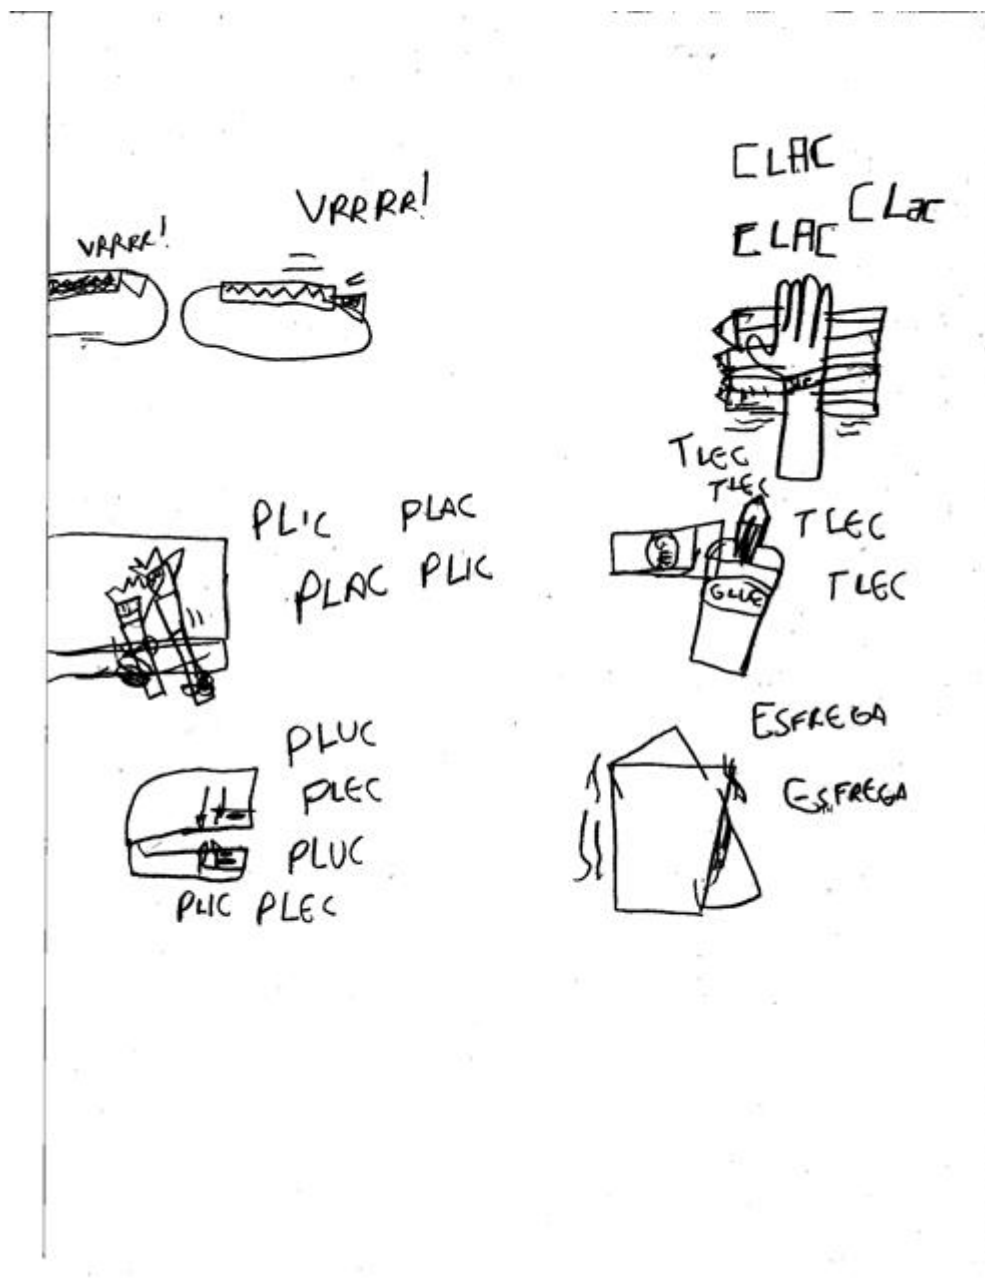 VRRRR!
VRRRR!
CLAC
CLac
CLAC
PLIC PLAC
PLAC PLIC
TLEC
TLEC
TLEC
TLEC
GLUE
PLUC
PLEC
PLUC
PLIC PLEC
ESFREGA
ESFREGA